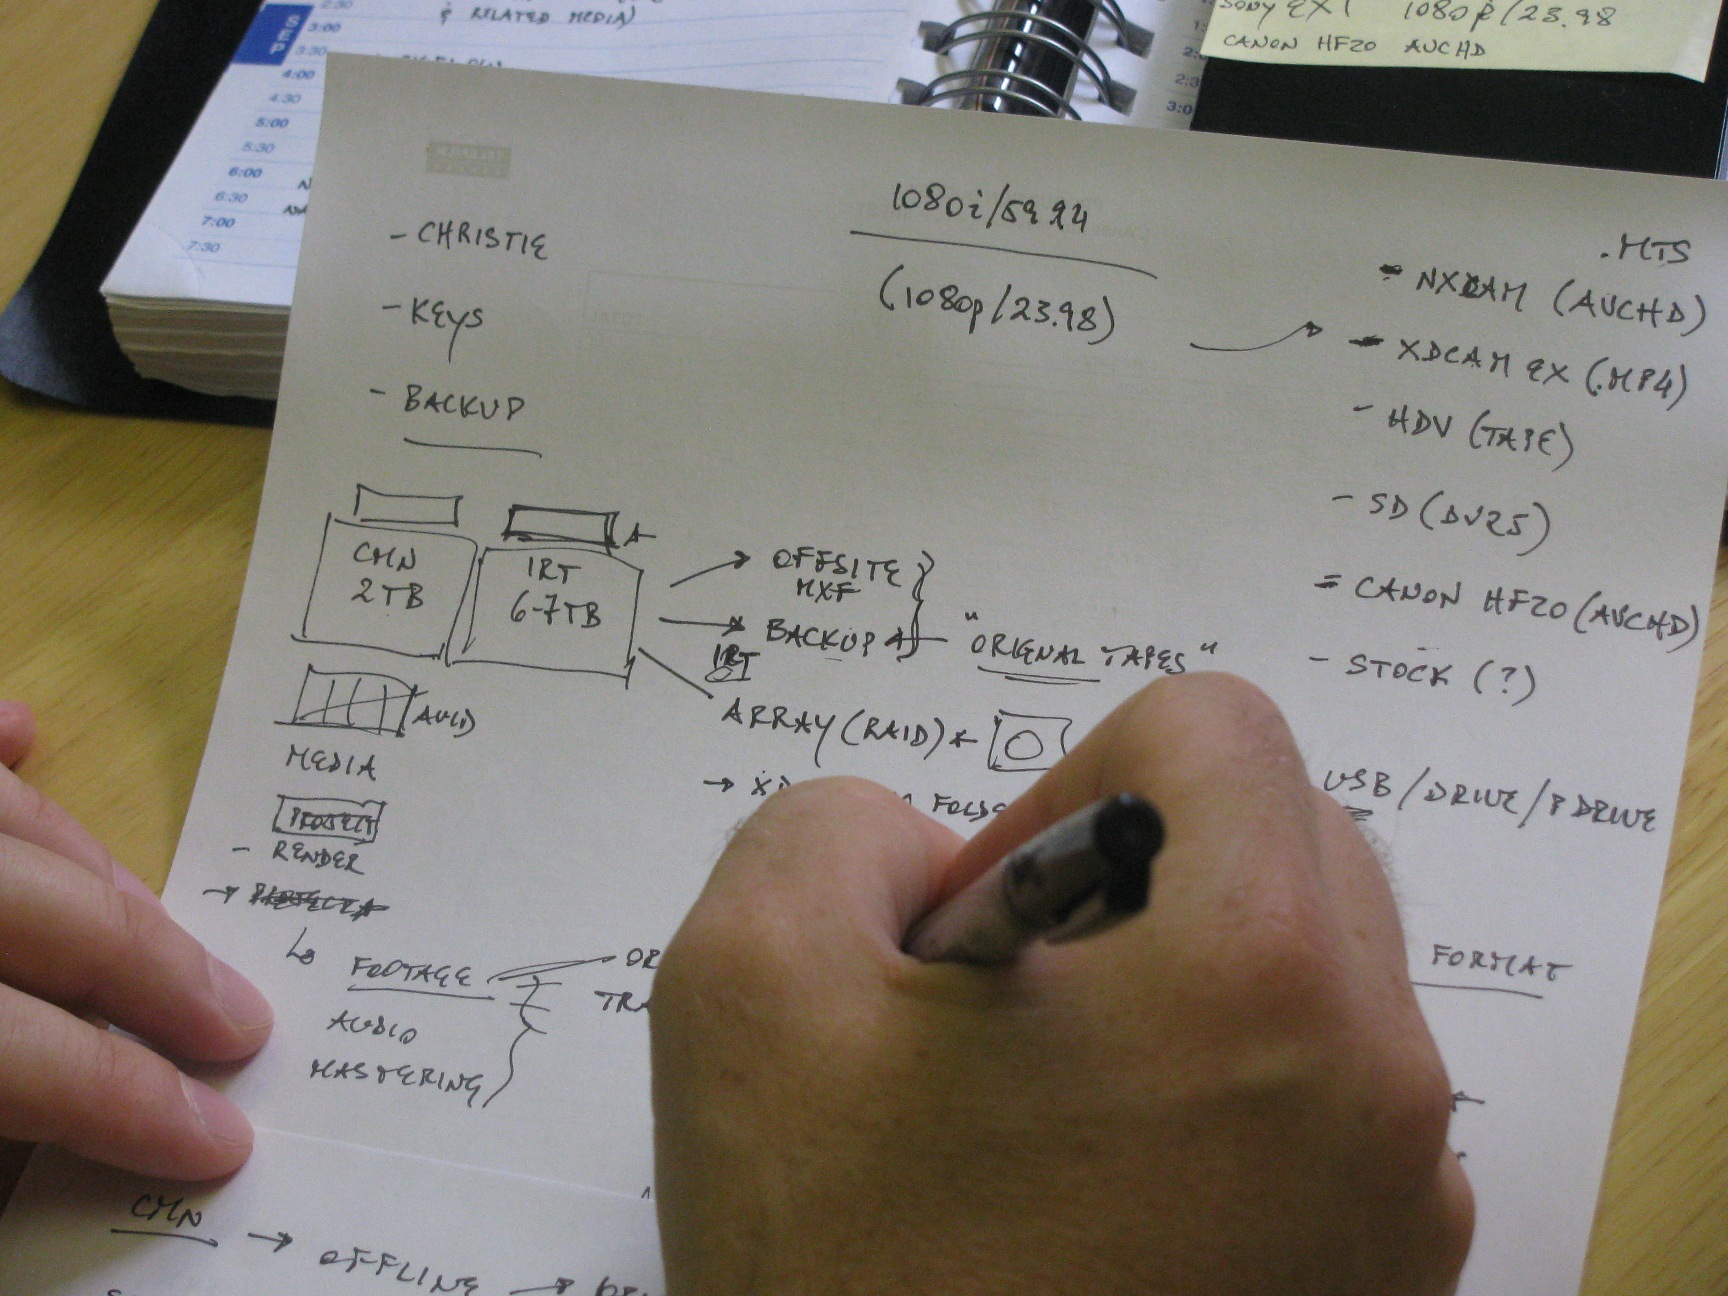 & RELATED MEDIA)
SEP
2:30
3:00
3:30
4:00
4:30
5:00
5:30
6:00
6:30
7:00
7:30
SONY EX1 1080p/23.98
CANON HF20 AVCHD
- CHRISTIE
- KEYS
- BACKUP
1080i/59.94
(1080p/23.98)
.MTS
- NXCAM (AVCHD)
- XDCAM EX (.MP4)
- HDV (TAPE)
- SD (DV25)
= CANON HF20 (AVCHD)
- STOCK (?)
CMN
2TB
IRT
6-7TB
OFFSITE
MXF
BACKUP
IRT
"ORIGENAL TAPES"
ARRAY (RAID)
AVID
MEDIA
PROJECT
- RENDER
FOLDE
USB / DRIVE / P DRIVE
FOOTAGE
OR
TRA
AUDIO
MASTERING
FORMAT
CMN → OFFLINE →